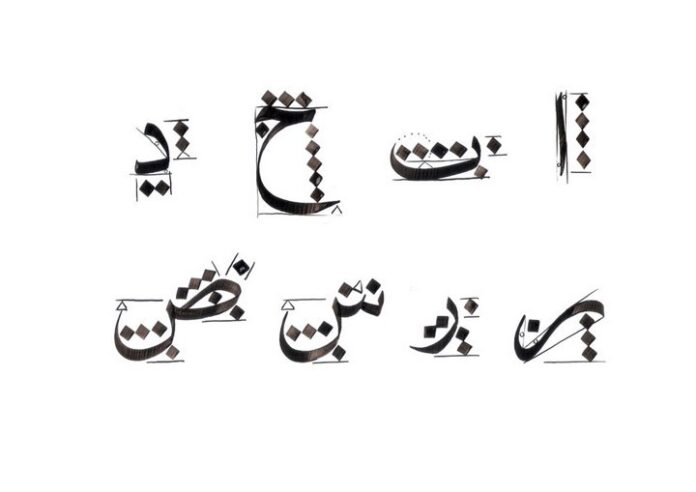 ا ب ح د
ر س ص